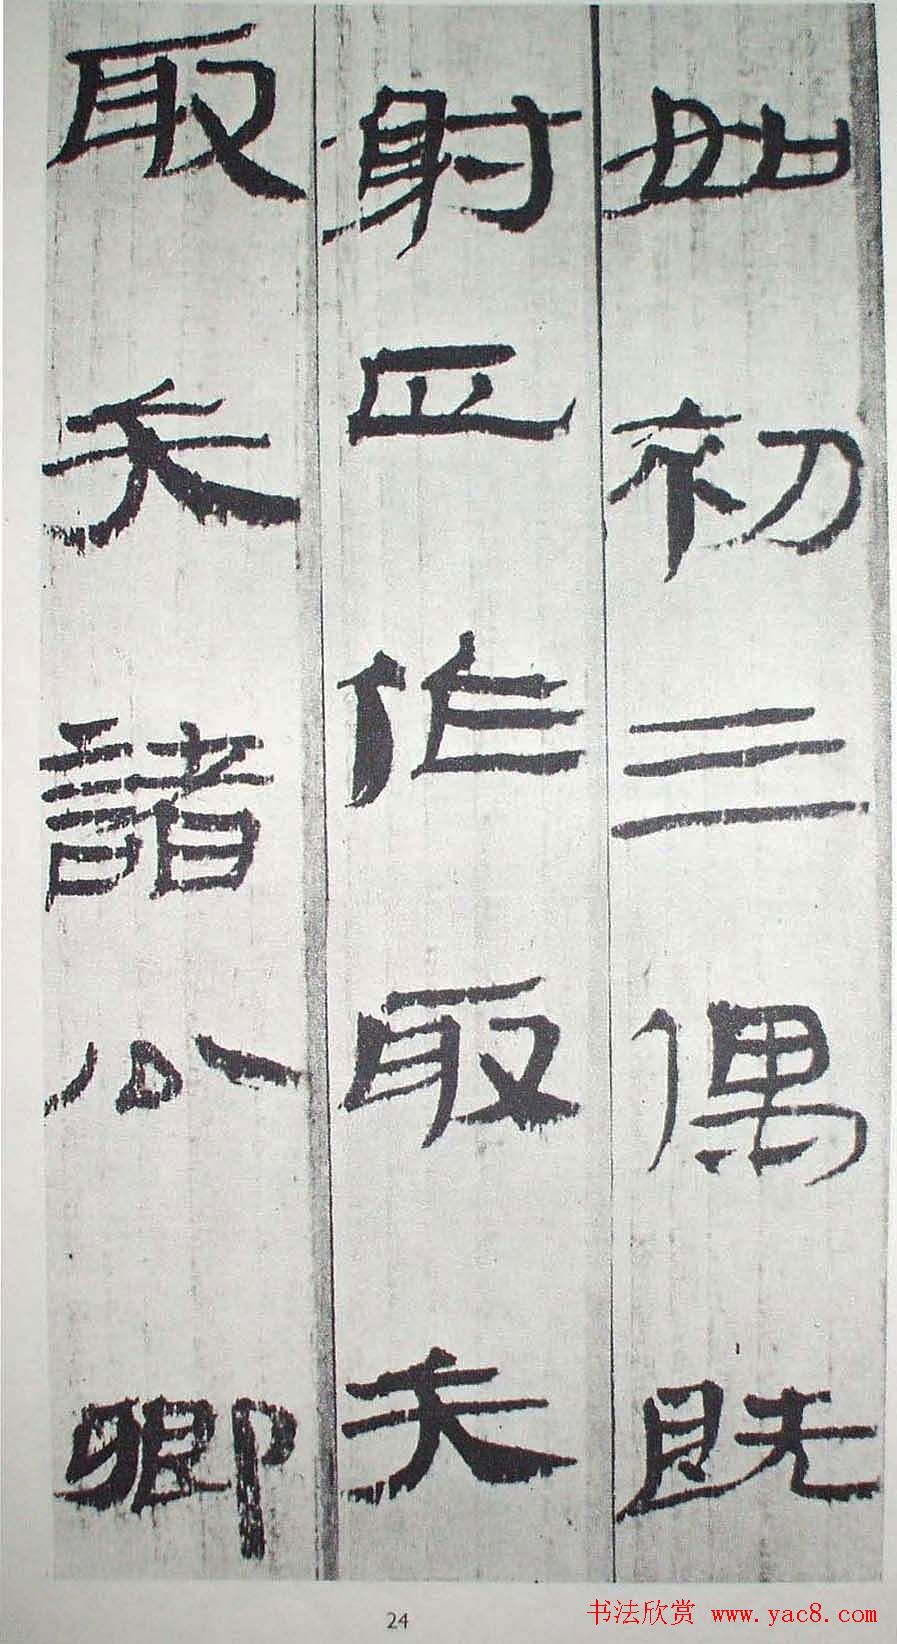 如初三偶既
射正作取矢
取矢諸公卿
24
书法欣赏 www.yac8.com